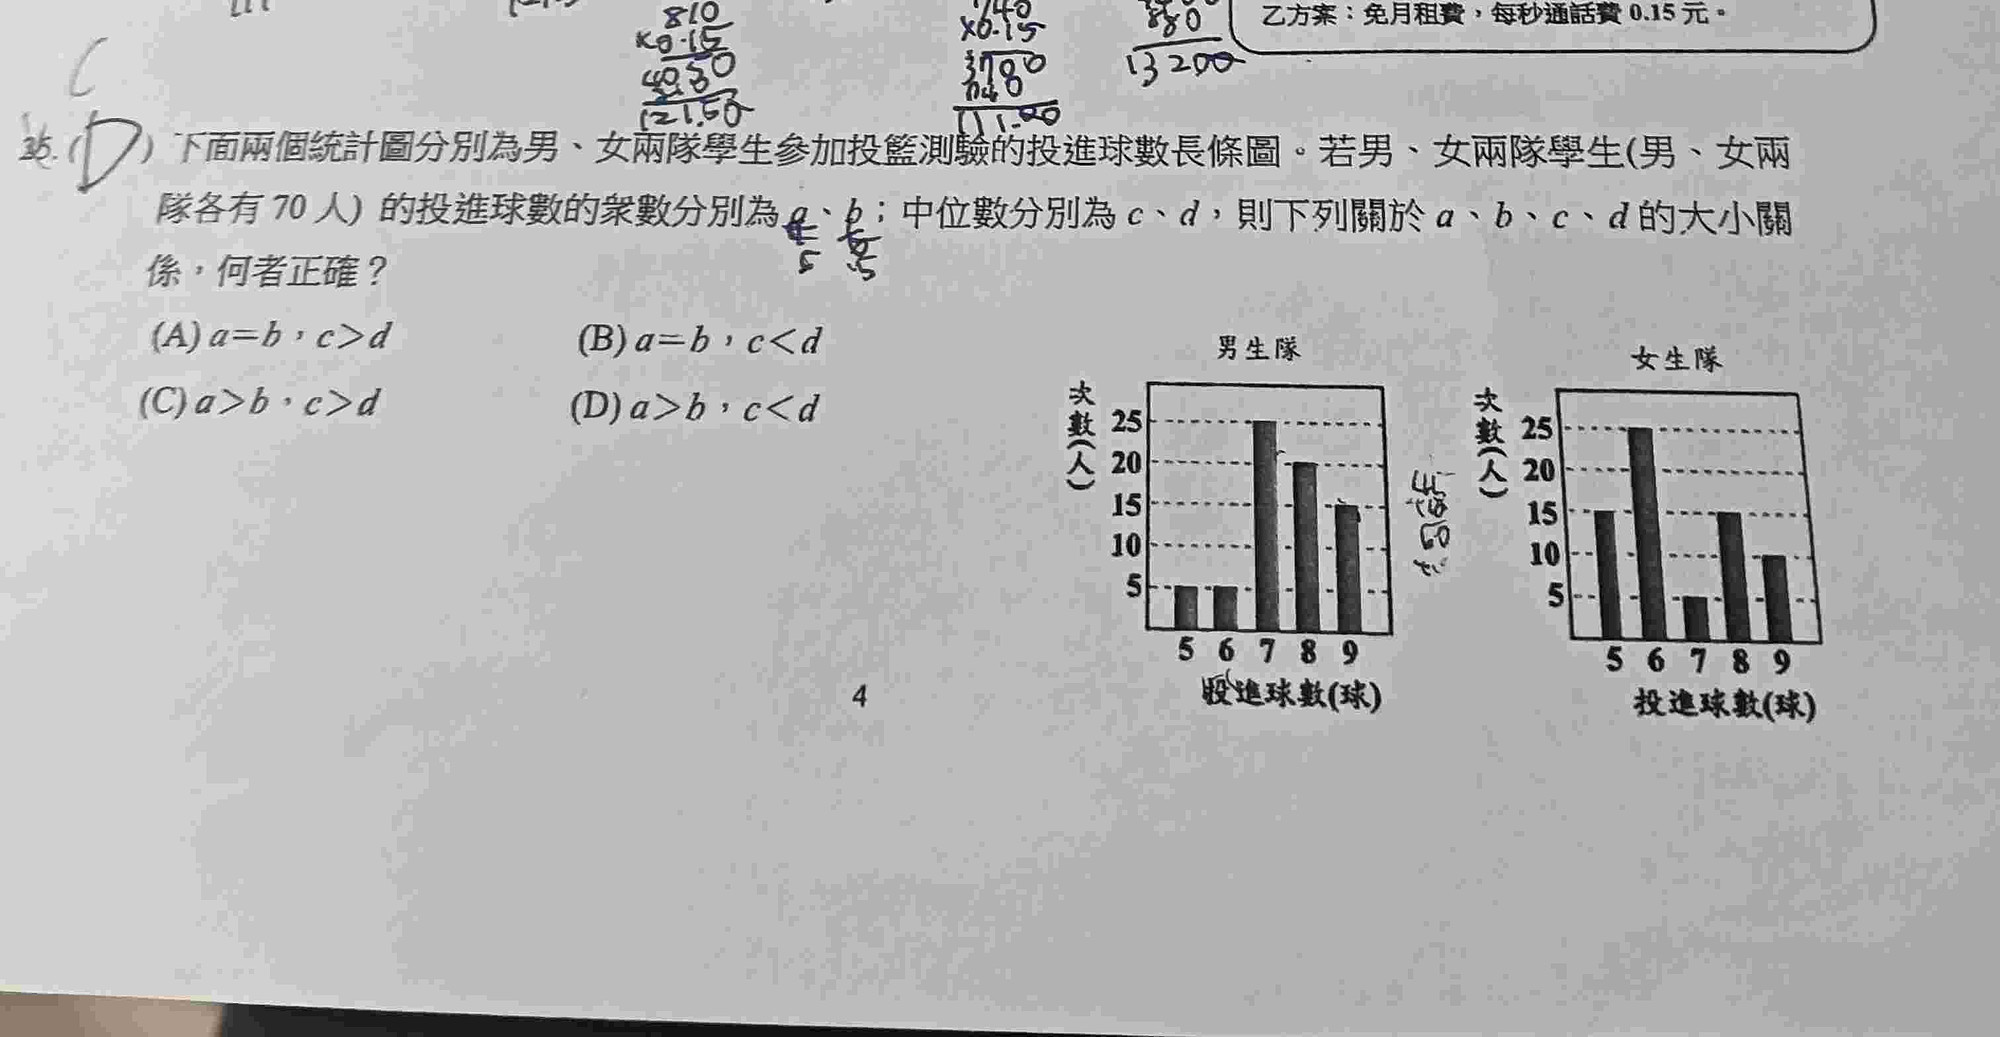 810 740 880
×0.15 ×0.15 13200
4050 3780
121.50 111.00
乙方案：免月租費，每秒通話費 0.15 元。
C
35.(D) 下面兩個統計圖分別為男、女兩隊學生參加投籃測驗的投進球數長條圖。若男、女兩隊學生(男、女兩
隊各有 70 人) 的投進球數的眾數分別為 a、b；中位數分別為 c、d，則下列關於 a、b、c、d 的大小關
係，何者正確？
(A) a=b，c>d (B) a=b，c<d
(C) a>b，c>d (D) a>b，c<d
男生隊
次數(人)
25
20
15
10
5
5 6 7 8 9
投進球數(球)
女生隊
次數(人)
25
20
15
10
5
5 6 7 8 9
投進球數(球)
4